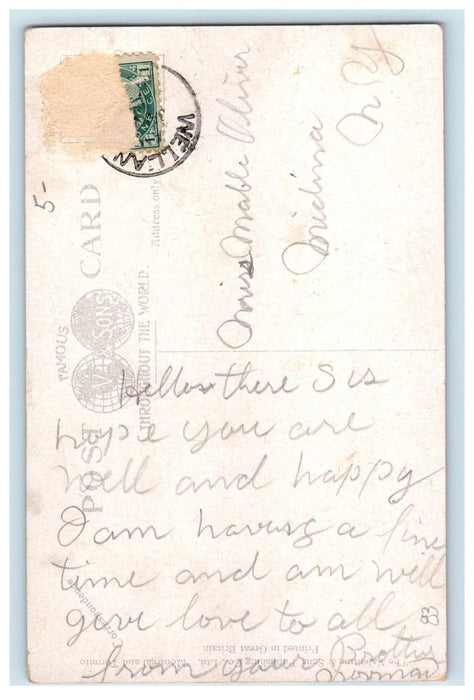 Hello there Sis
hope you are
well and happy
I am having a fine
time and am well
give love to all
from your Brother
Norman
Miss Mable Oliver
Medina
N. Y.
POST CARD
FAMOUS
V & SONS
THROUGHOUT THE WORLD.
Address only
Correspondence
The Valentine & Sons Publishing Co. Ltd. Montreal and Toronto
Printed in Great Britain
WELLAN
5-
83
1
1